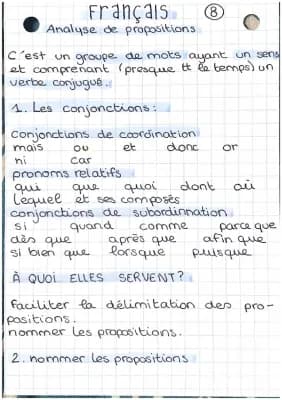 Français
8
Analyse de propositions
C'est un groupe de mots ayant un sens
et comprenant (presque tt le temps) un
verbe conjugué.
1. Les conjonctions :
conjonctions de coordination
mais ou et donc or
ni car
pronoms relatifs
qui que quoi dont où
lequel et ses composés
conjonctions de subordinnation
si quand comme parce que
dès que après que afin que
si bien que lorsque puisque
À QUOI ELLES SERVENT?
Faciliter la délimitation des pro-
positions.
nommer les propositions.
2. nommer les propositions